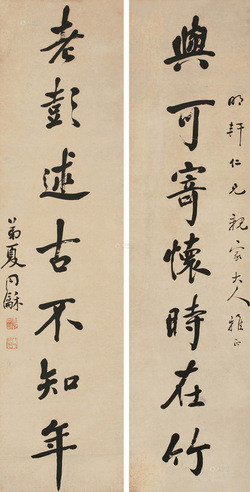 明轩仁兄親家大人雅正
與可寄懷時在竹
老彭述古不知年
弟夏同龢